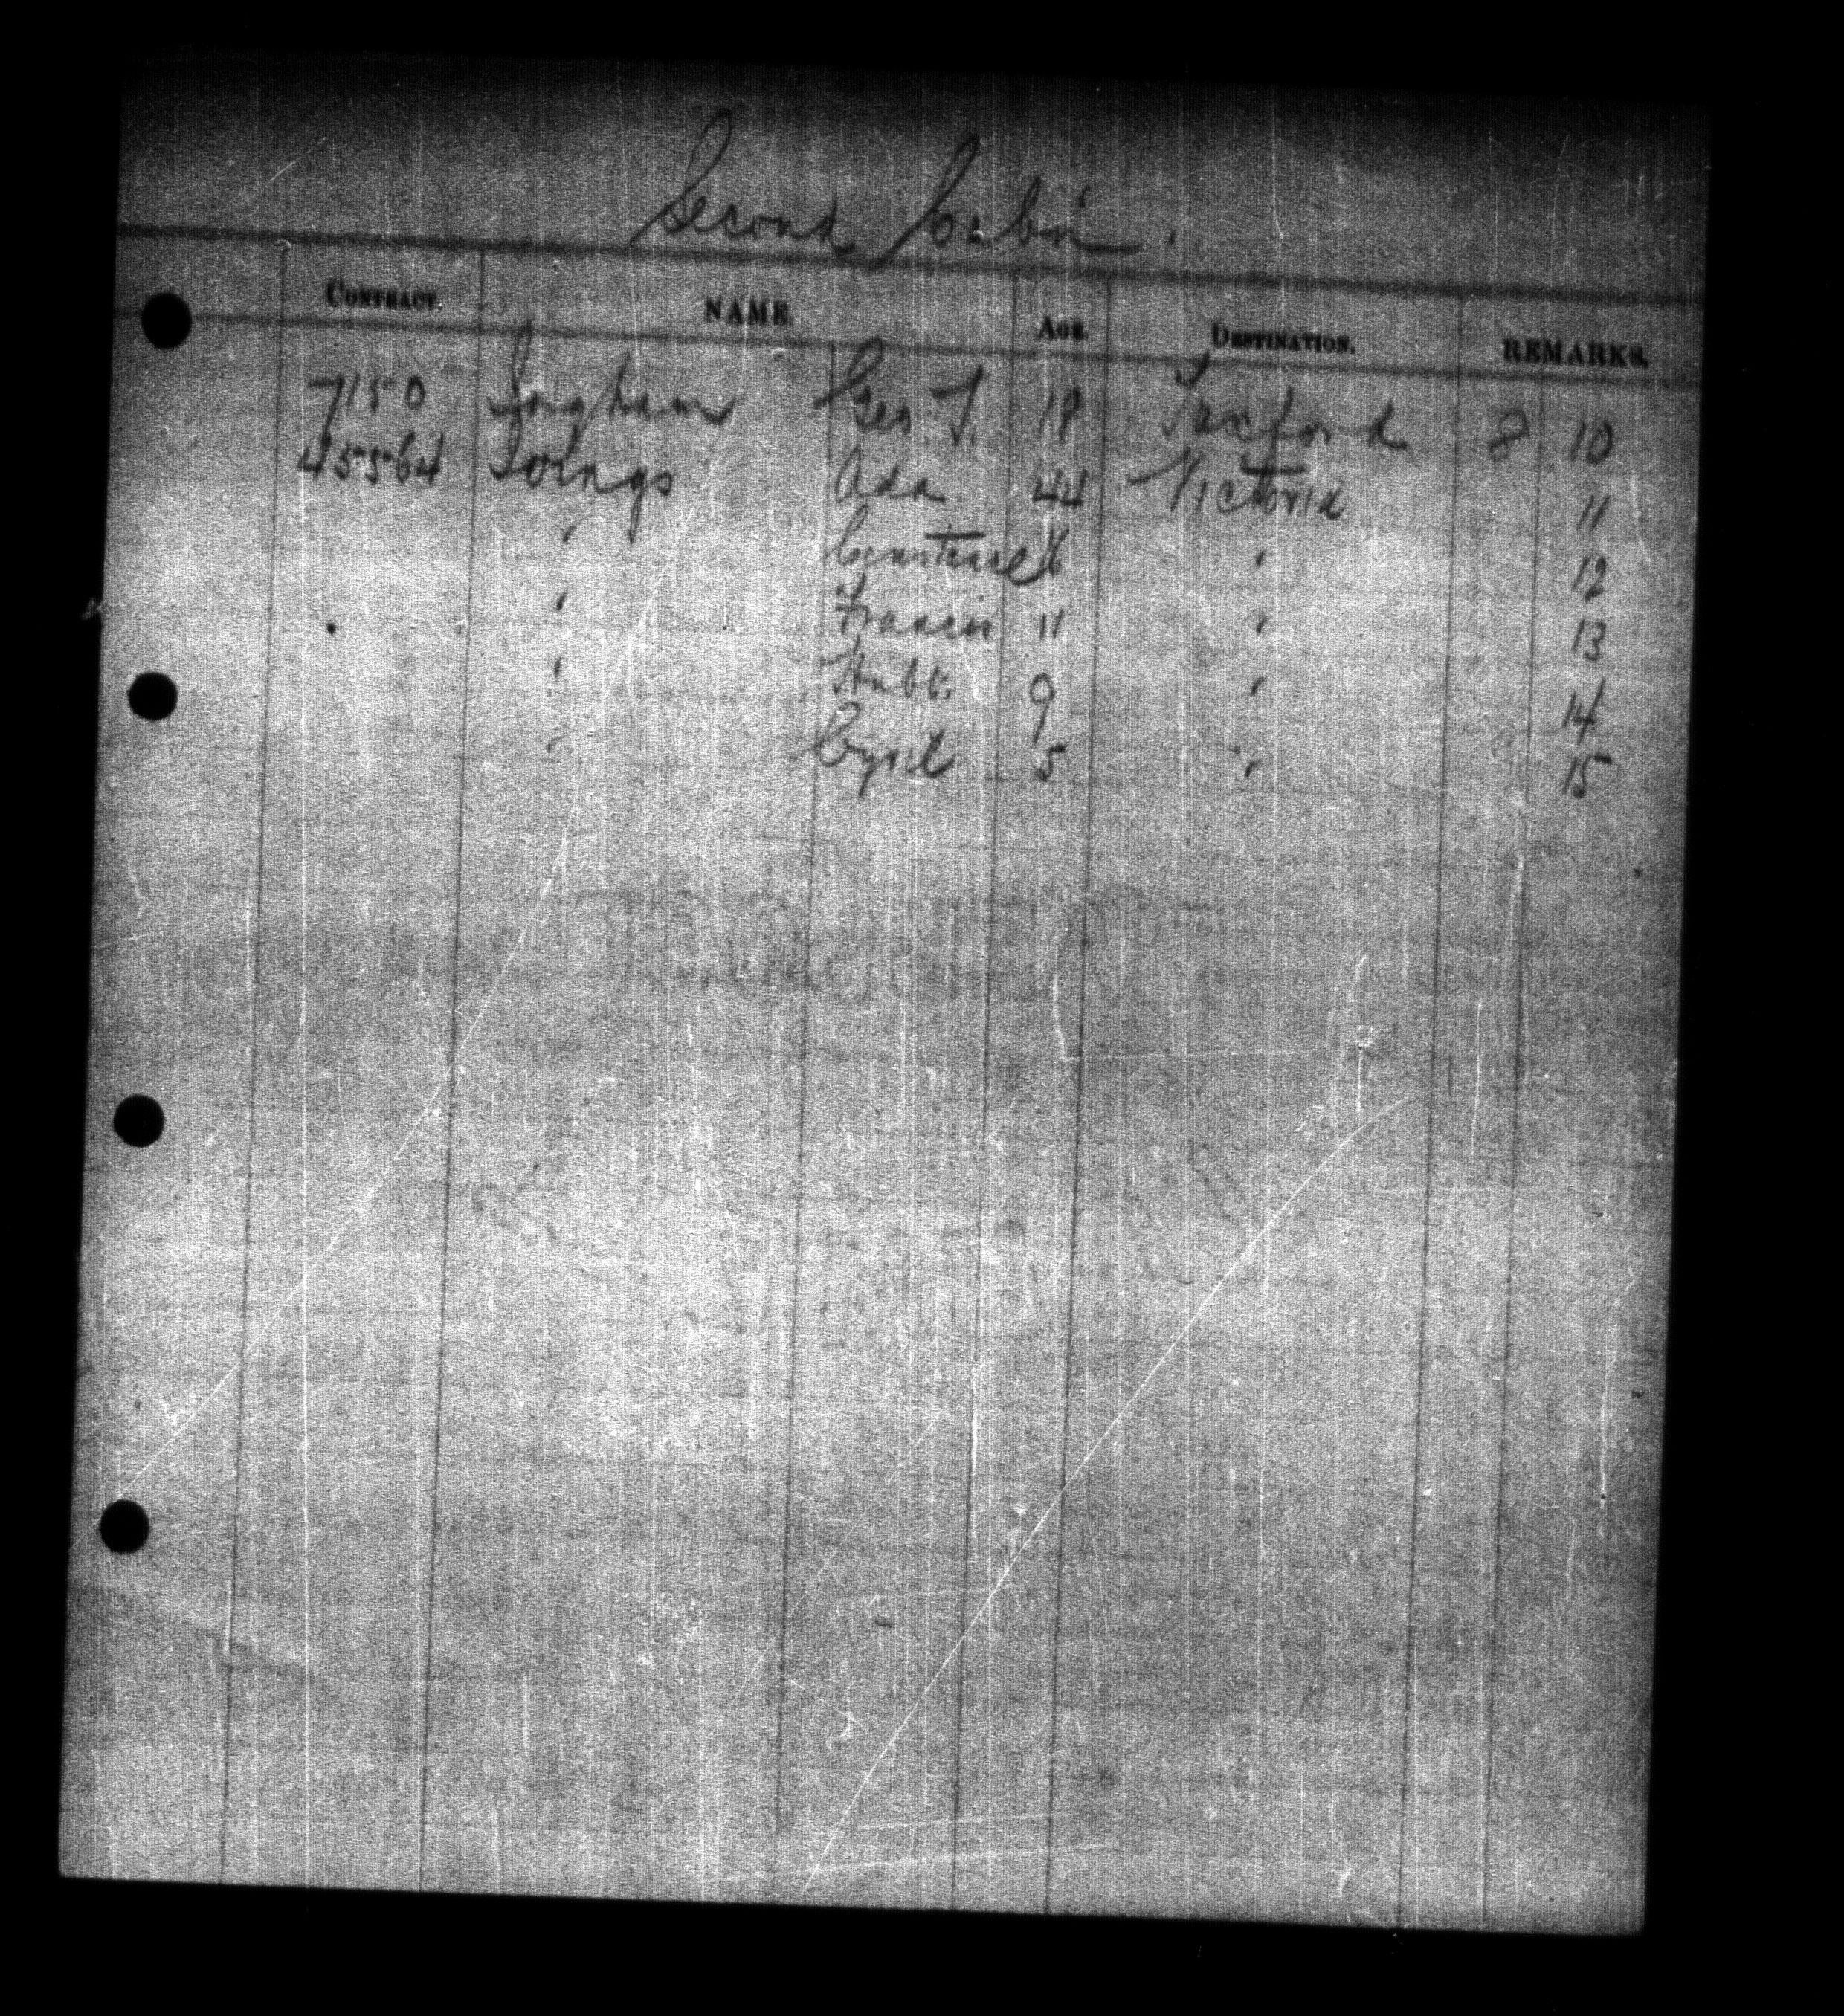 Second Cabin.
CONTRACT. NAME. AGE. DESTINATION. REMARKS.
7150 Ingham Geo T. 18 Tanford 8 10
45564 Ivings Ada 44 Victoria 11
" 16 " 12
" Francis 11 " 13
" 9 " 14
" Cyril 5 " 15